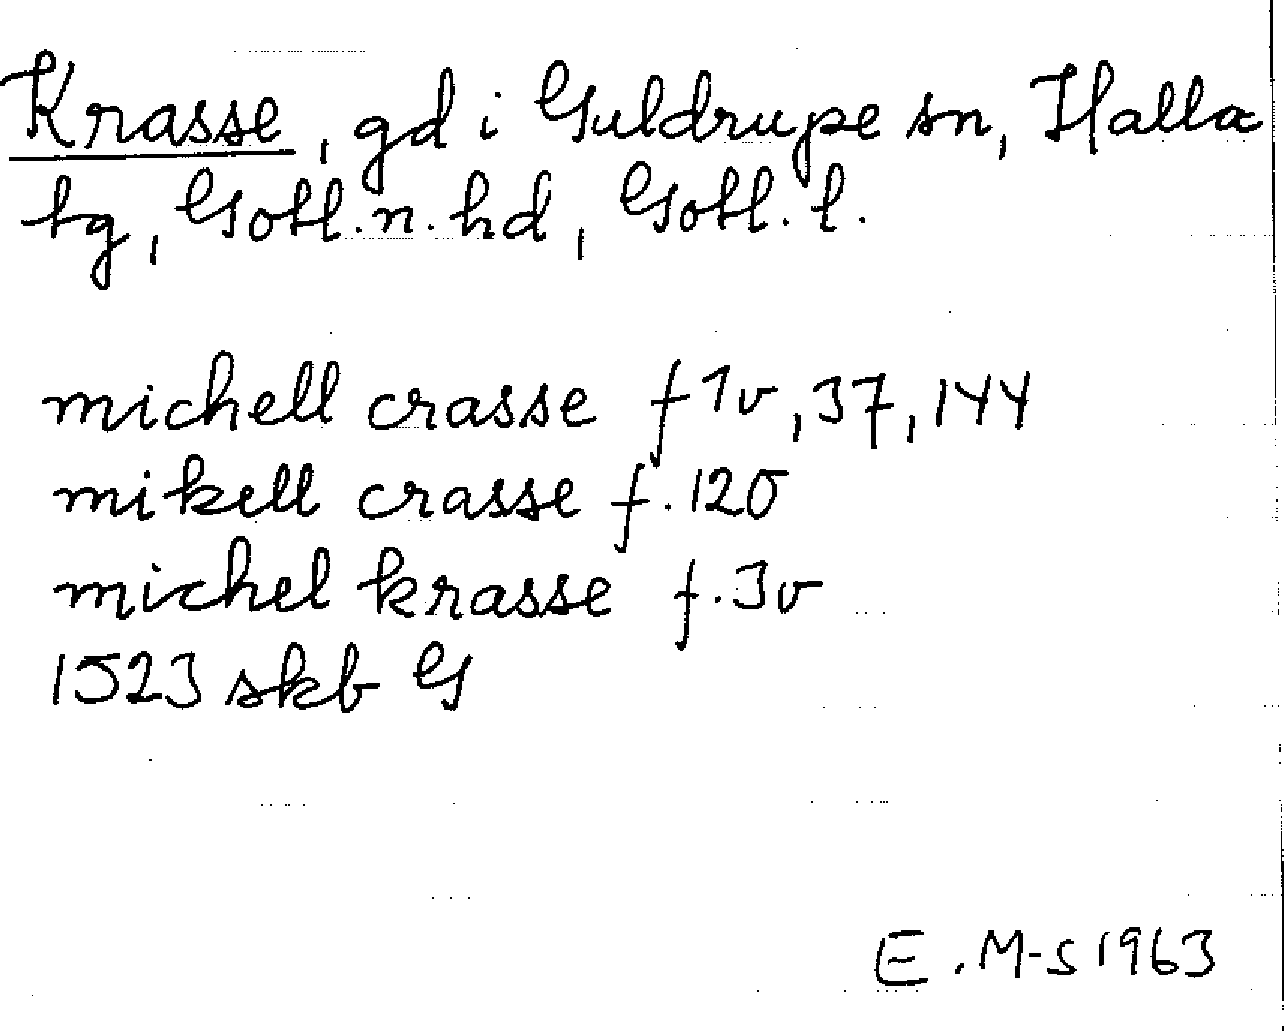 Krasse, gd i Guldrupe sn, Halla
tg, Gotl. n. hd, Gotl. l.
michell crasse f 1v, 37, 144
mikell crasse f. 120
michel krasse f. 3v
1523 skb G
E. M-S 1963